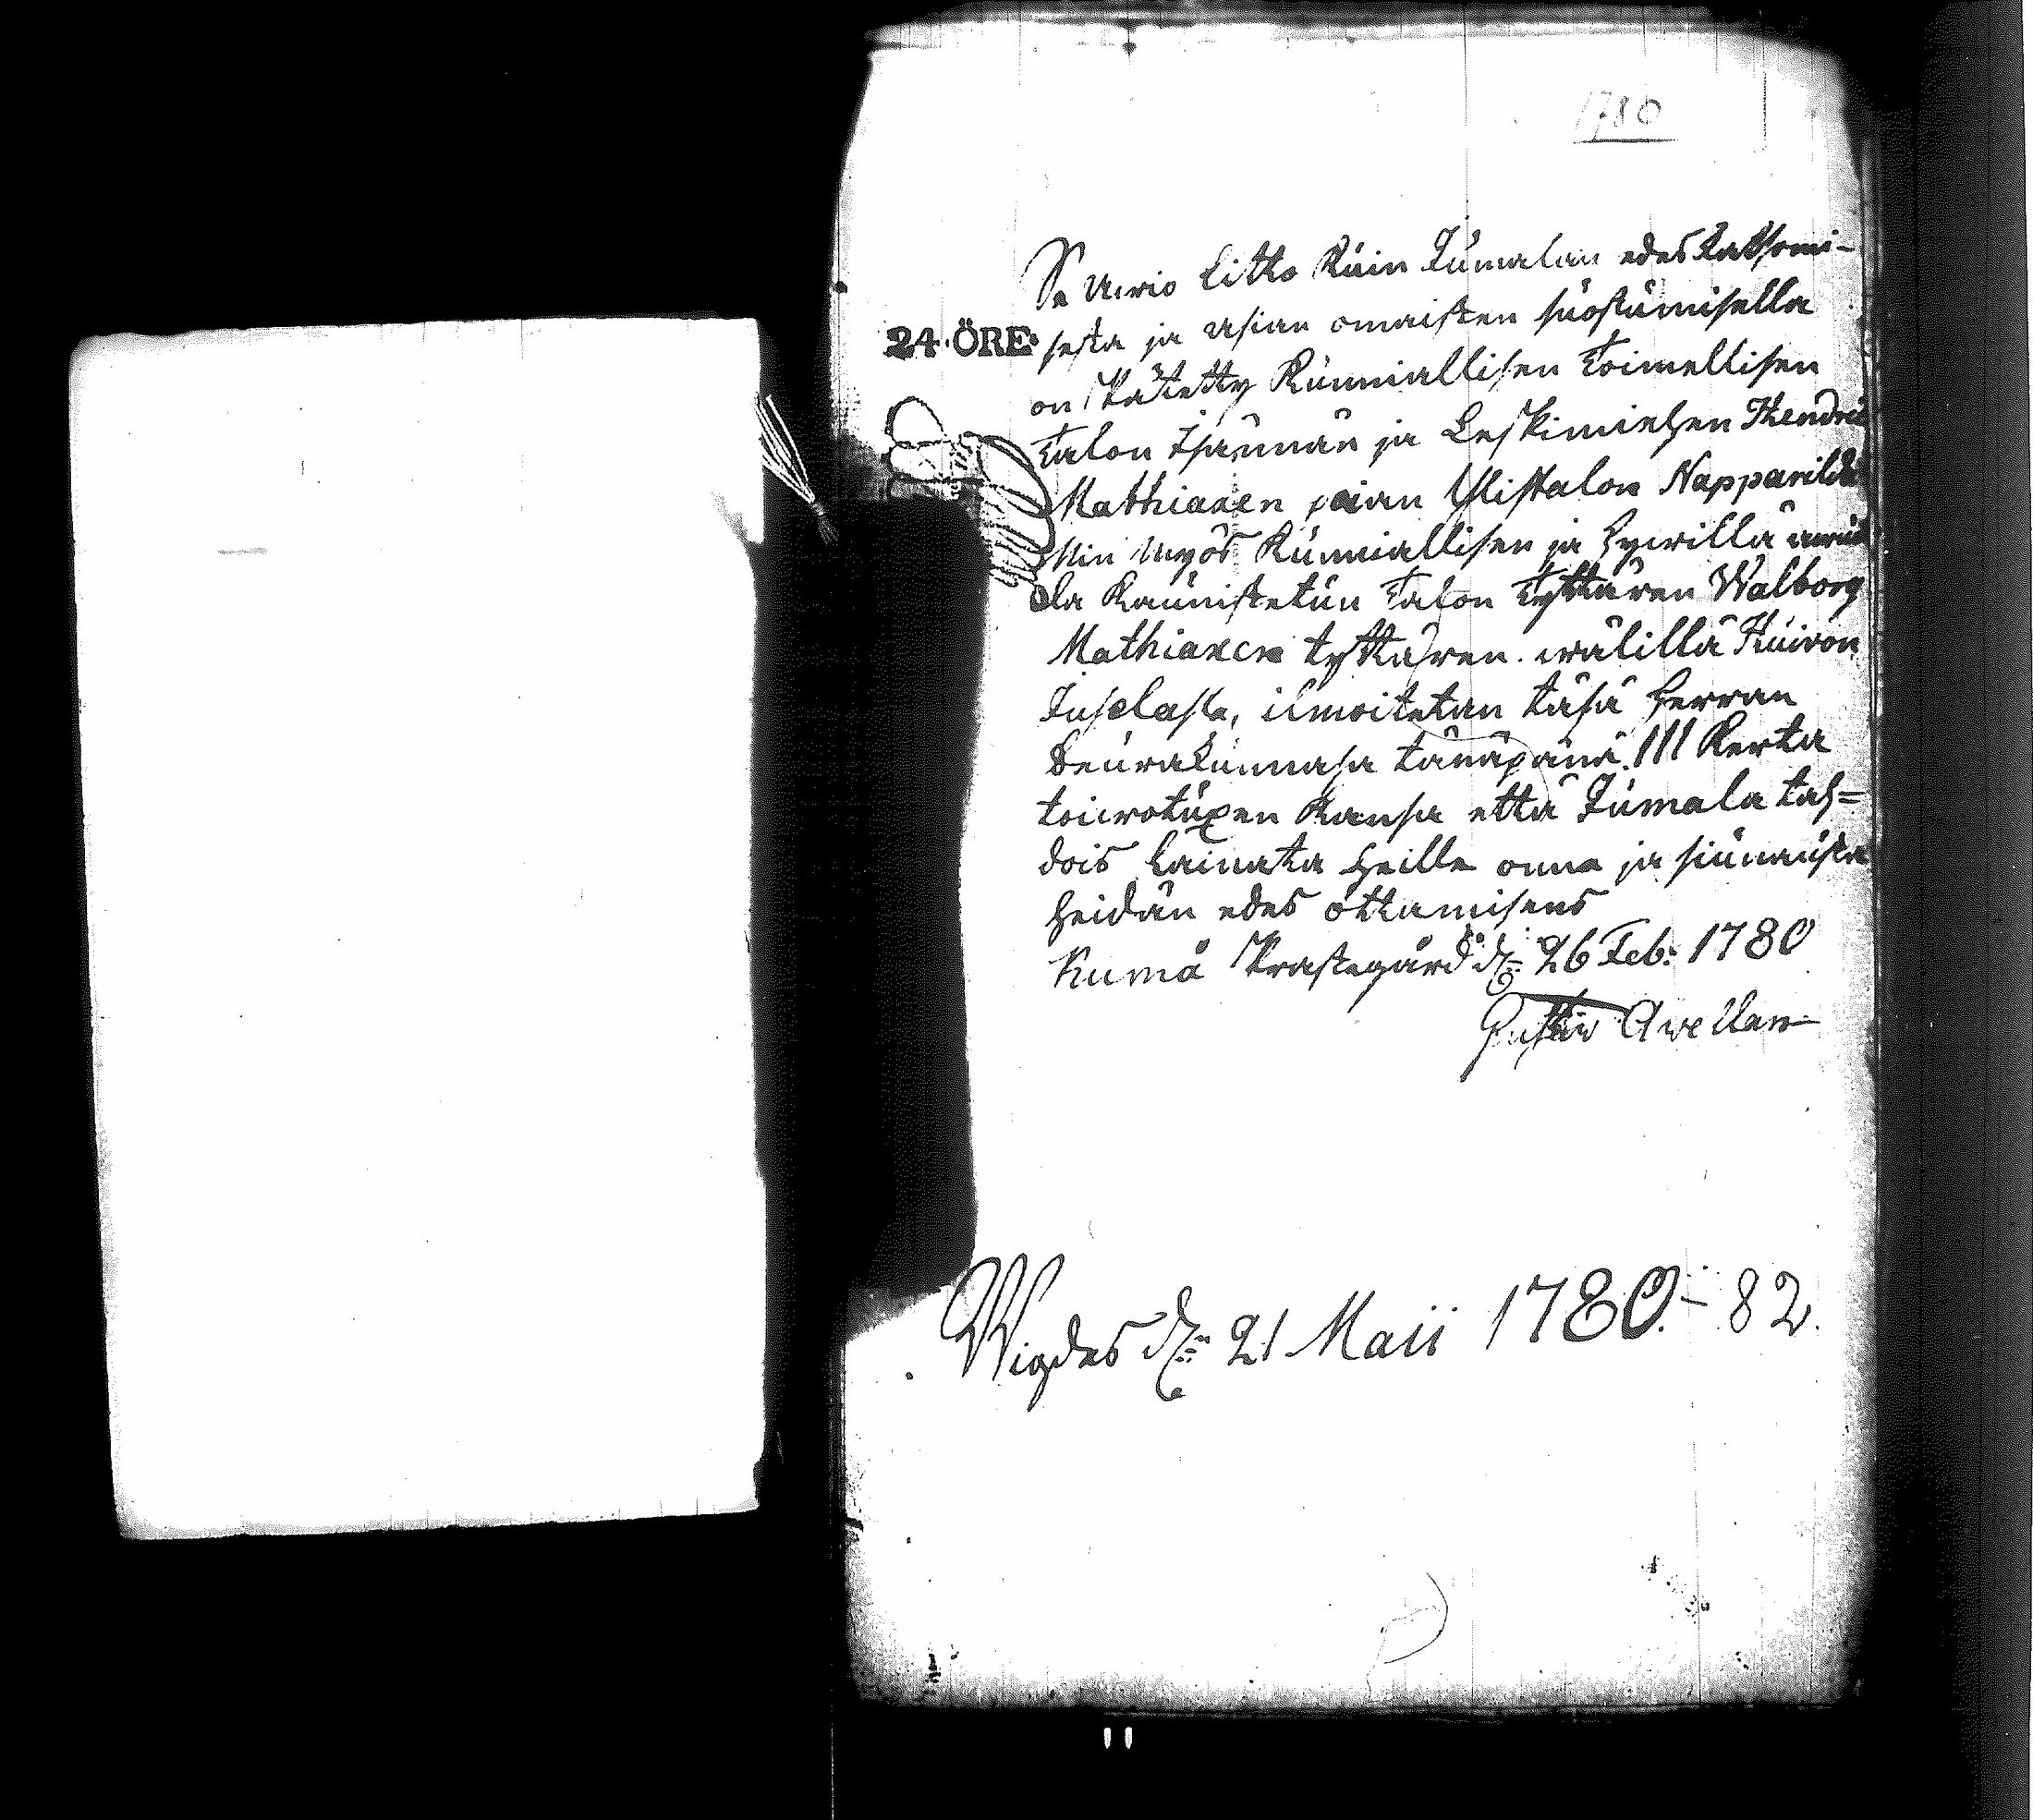 1780
Se Awio Litto kuin Jumalan edeskatsomi-
24·ÖRE· sesta ja asian omaisten suostumisella
on päätetty kunniallisen toimellisen
talon Isännän ja Leskimiehen Hendric
Mathiaxen pojan Ylistalon Napparilda
Nin myös kunniallisen ja hywillä awuil
la kaunistetun talon tyttären Walborg
Mathiaxen tyttären wälillä Kuiron
Juselasta, ilmoitetan täsä Herran
Seurakunnasa tänäpänä III kerta
toiwotuxen kansa että Jumala tah=
dois lainata heille onne ja siunausta
heidän edes ottamisens
Kumå Prästegård d: 26 Feb: 1780
Gustav Avellan
Wigdes d: 21 Maii 1780.- 82.